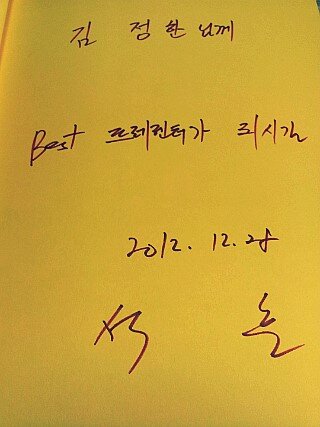 김 정환님께
Best 프레젠터가 되시길
2012. 12. 28